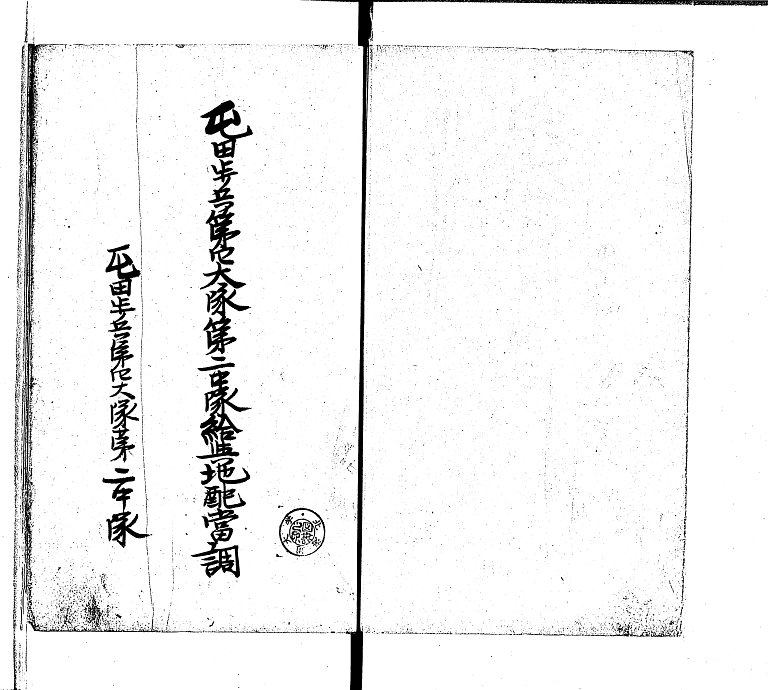 屯田歩兵第四大隊第二中隊給与地配當調
屯田歩兵第四大隊第二中隊